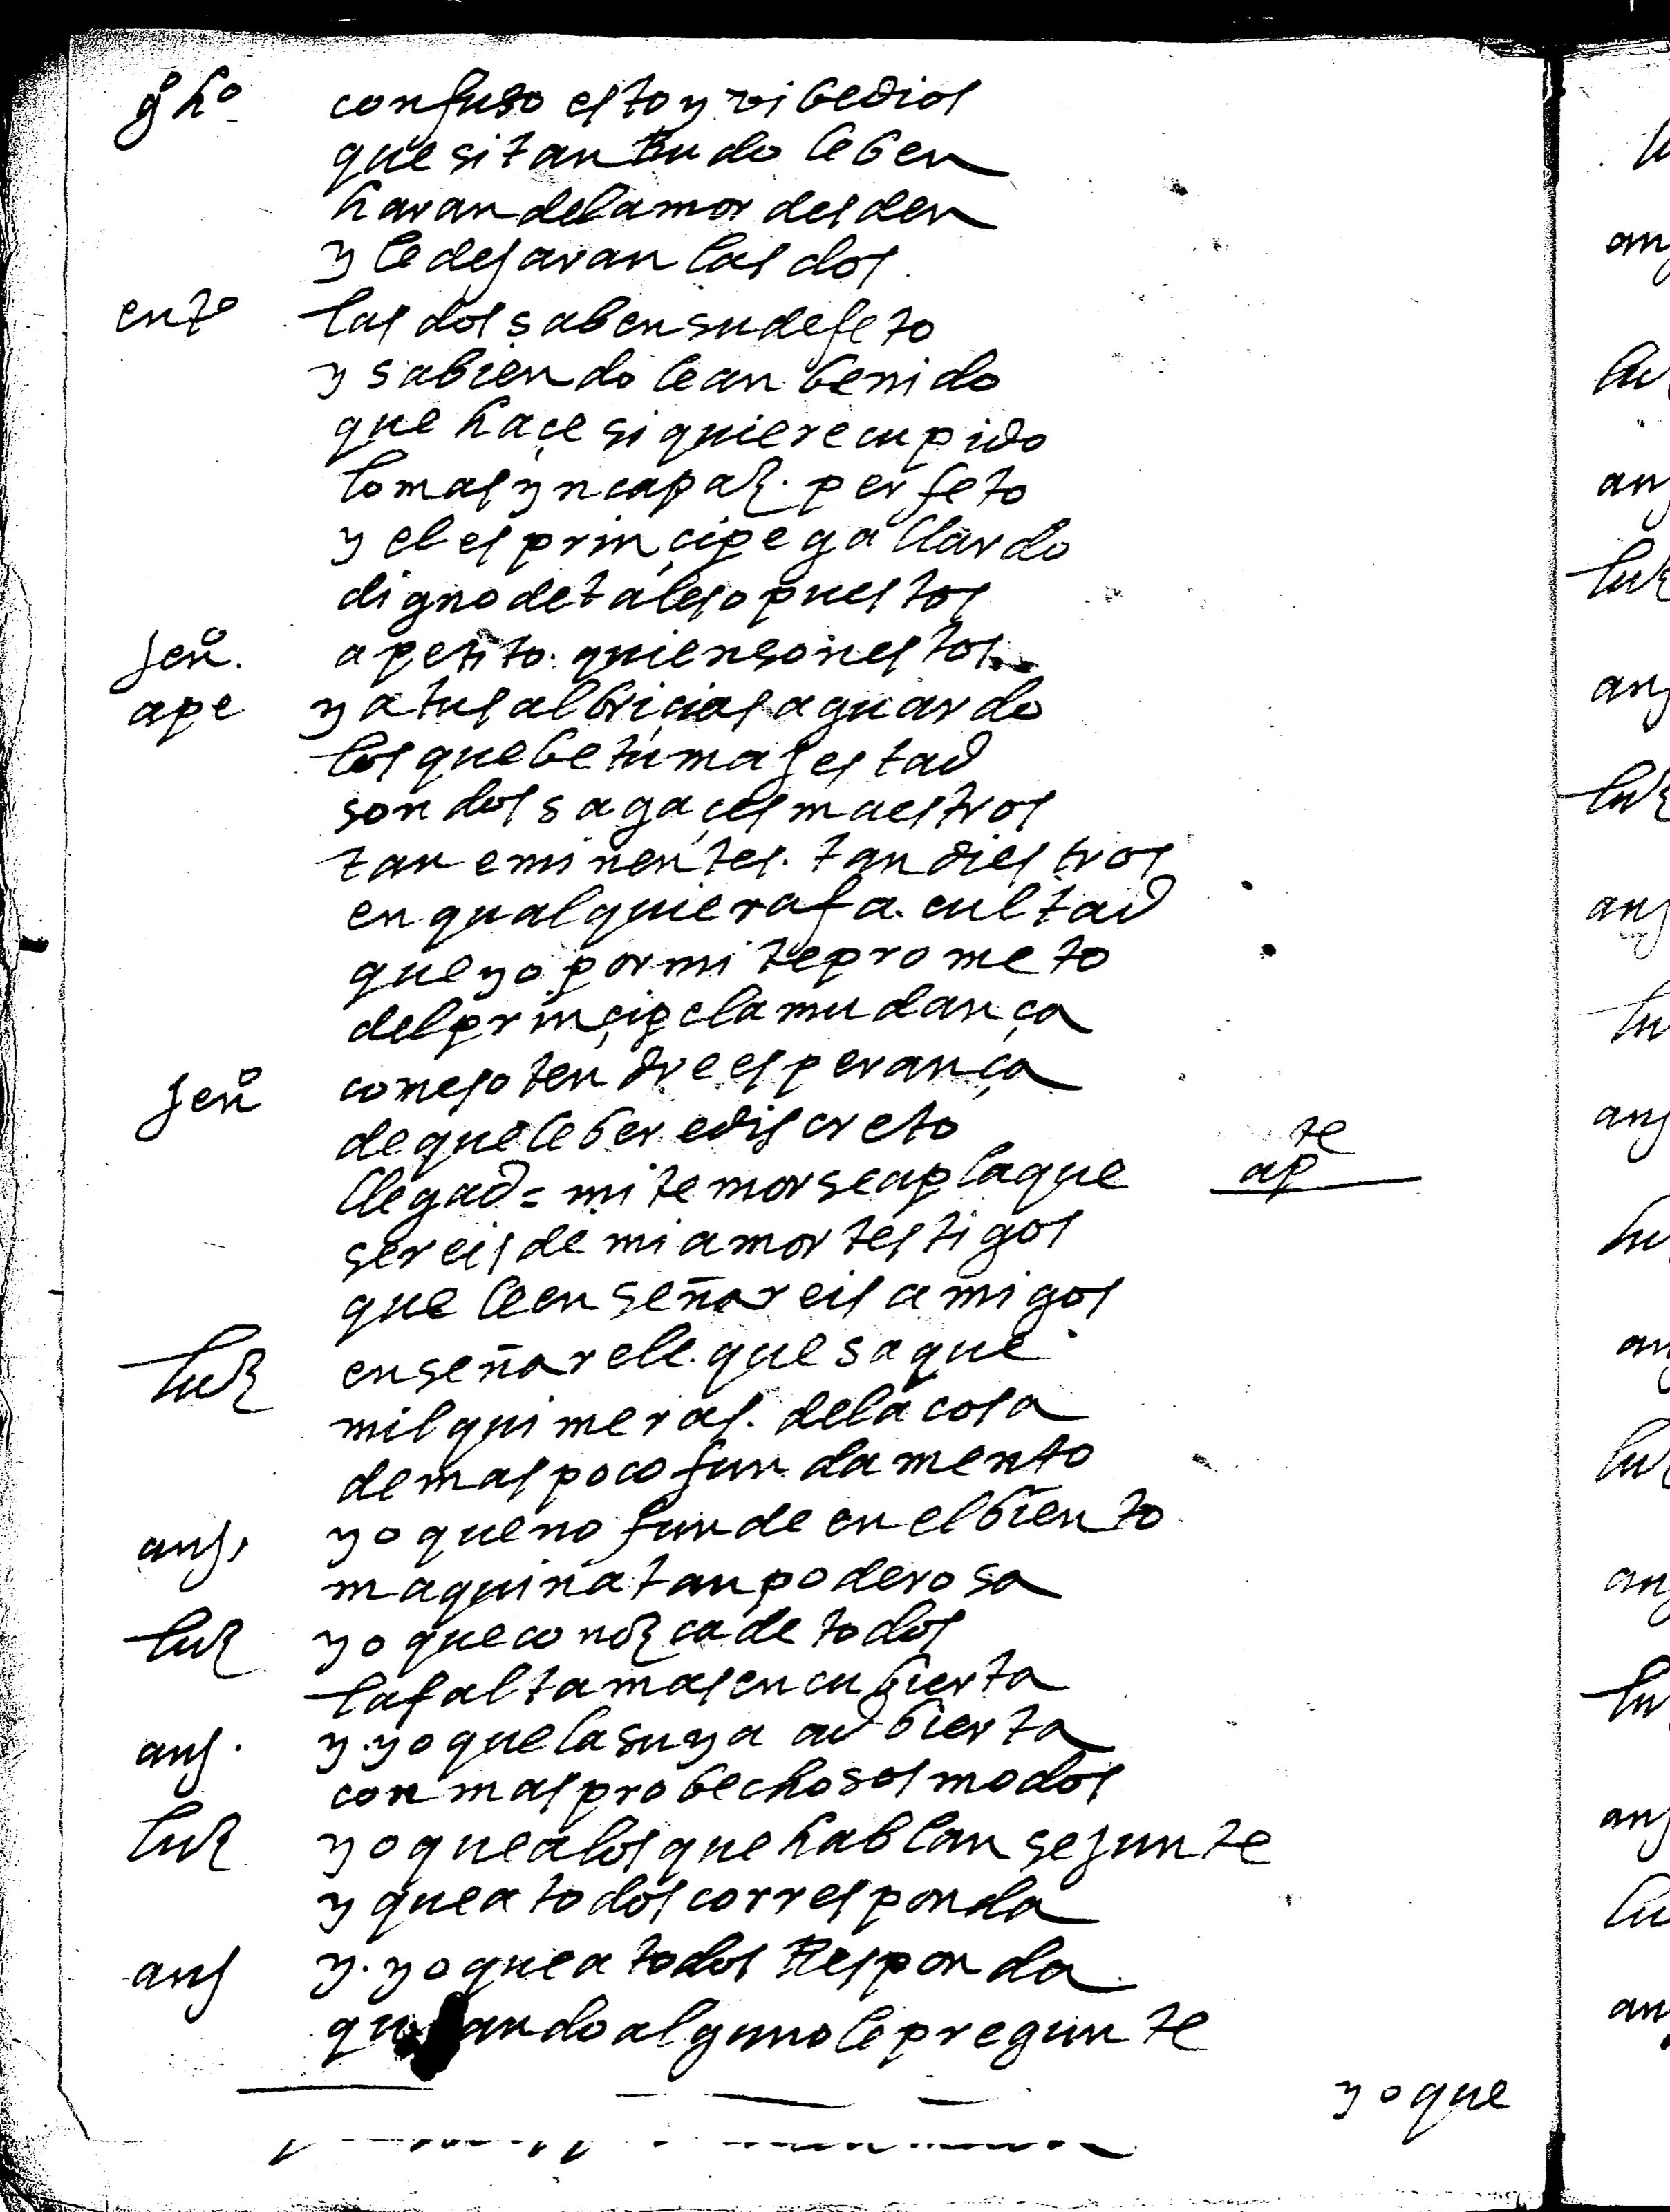 gº hº confuso estoy vibe dios
que si tan Rudo le ben
haran del amor desden
y le dejaran las dos
entº las dos saben su defeto
y sabiendo le an benido
que haçe si quiere cupido
lo mas yncapaz. perfeto
y el es prinçipe gallardo
digno de tales opuestos
jenº. apetito. quien son estos
ape ya tus albriçias aguardo
los que be tu majestad
son dos sagaçes maestros
tan eminentes. tan diestros
en qualquiera facultad
que yo por mi te prometo
del prinçipe la mudança
jenº con eso tendre esperança
de que le bere discreto
llegad = mi temor se aplaque apte
sereis de mi amor testigos
que le enseñareis amigos
luz enseñarele. que saque
mil quimeras. de la cosa
de mas poco fundamento
anj. yo que no funde en el biento
maquina tan poderosa
luz yo que conozca de todos
la falta mas encubierta
anj. y. yo que la suya adbierta
con mas probechosos modos
luz yo que a los que hablan se junte
y que a todos corresponda
anj y. yo que a todos Responda
quando alguno le pregunte
yo que